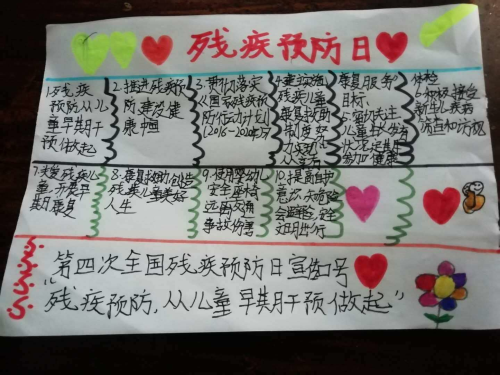 残疾预防日
1.残疾
预防从儿
童早期干
预做起
2.推进残疾预
防,建设健
康中国
3.贯彻落实
《国家残疾预
防行动计划》
(2016-2020年)
4.
残疾儿童
康复救助
制度
康复服务
目标
5.密切关注
儿童
状况定期
健康
体检
6.积极接受
新生儿疾病
筛查和
7.关爱残疾儿
童,开展早
期康复
8.康复救助创造
残疾儿童美好
人生
9.使用婴幼儿
安全座椅
远离交通
事故伤害
10.提高自护
意识
安全
文明出行
第四次全国残疾预防日宣传口号
"残疾预防,从儿童早期干预做起"